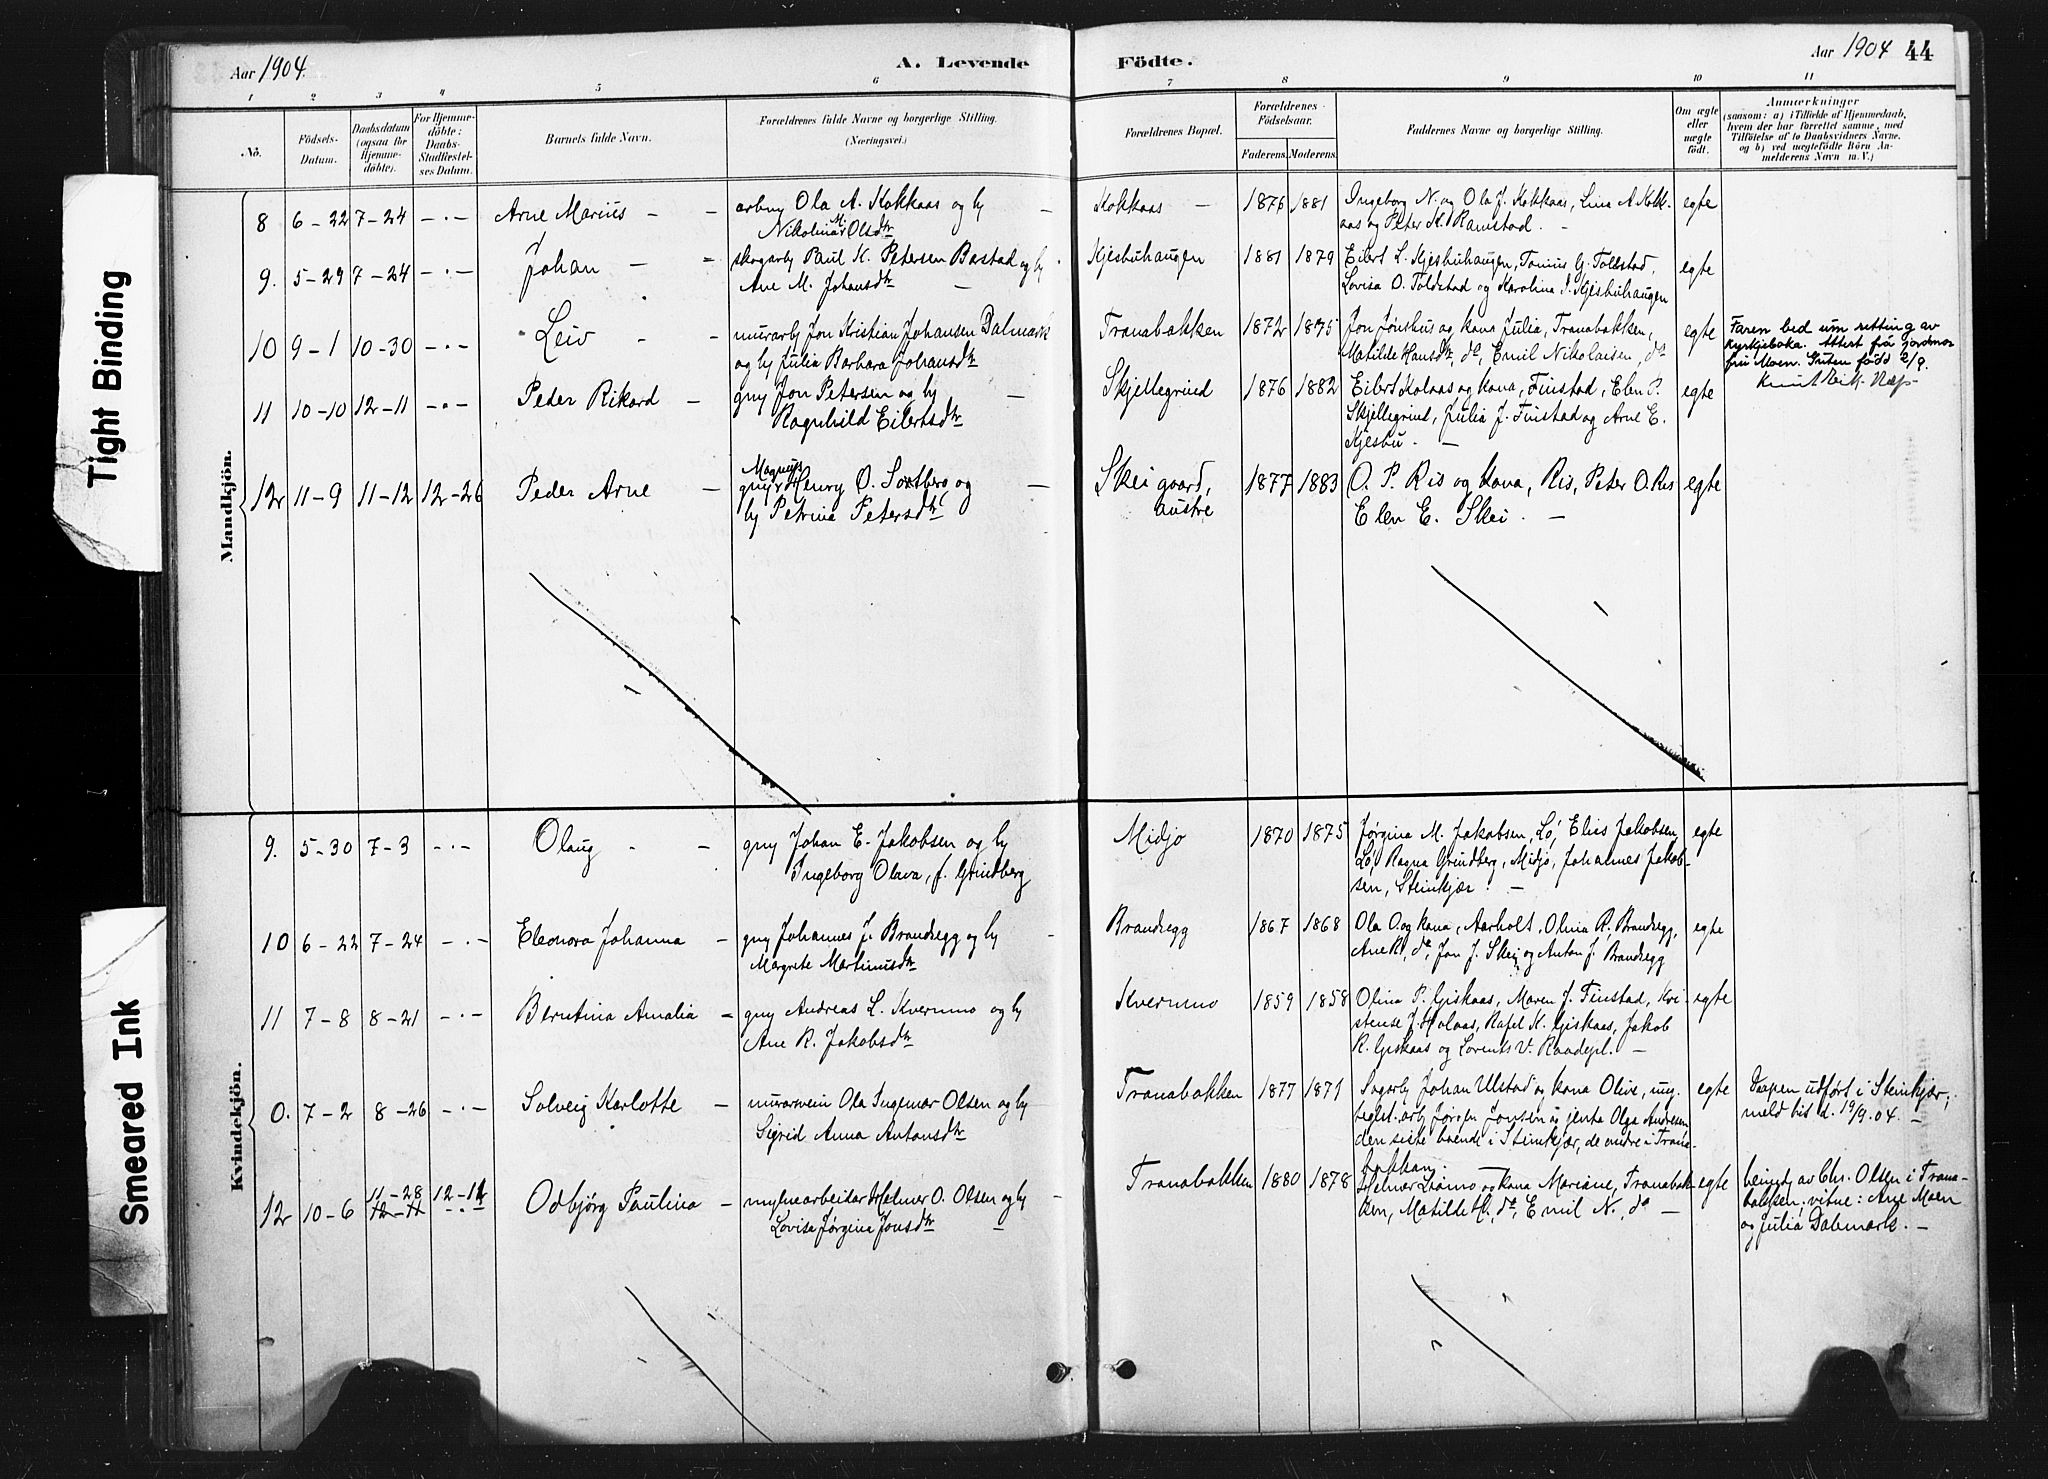 Tight Binding
Smeared Ink
Aar 1904.
A. Levende Födte.
Aar 1904 44
1 2 3 4 5 6 7 8 9 10 11
No.
Födsels-
Datum.
Daabsdatum
(ogsaa for
Hjemme-
döbte).
For Hjemme-
döbte:
Daabs-
Stadfæstel-
ses Datum.
Barnets fulde Navn.
Forældrenes fulde Navne og borgerlige Stilling.
(Næringsvei.)
Forældrenes Bopæl.
Forældrenes
Födselsaar.
Faderens. Moderens.
Faddernes Navne og borgerlige Stilling.
Om ægte
eller
uægte
födt.
Anmærkninger
(saasom: a) i Tilfælde af Hjemmedaab,
hvem der har forrettet samme, med
Tilföielse af to Daabsvidners Navne,
og b) ved uægtefödte Börn An-
melderens Navn m. V.)
Mandkjön.
8 6-22 7-24 -·- Arne Marius - - arbmg Ola A. Kokkaas og hy -
Nikolina M. Olsdtr
Kokkaas - 1876 1881 Ingeborg N. og Ola J. Kokkaas, Lina A. Kokk-
aas og Peter K. Ramstad. -
egte
9. 5-29 7-24 -·- Johan - - skogarb Paul K. Petersen Bastad og hy
Ane M. Johansdtr -
Kjesbuhaugen 1881 1879 Eilert L. Kjesbuhaugen, Tomius G. Toldstad,
Lovisa O. Toldstad og Karolina J. Kjesbuhaugen
egte
10 9-1 10-30 -·- Leiv - - murarb Jon Kristian Johansen Dalmark
og hy Julia Barbara Johansdtr
Tranabakken 1872 1875 Jon Jönshus og kona Julia, Tranabakken,
Matilde Hansdtr, do, Emil Nikolaisen, do
egte
Faren bed um retting av
kyrkjeboka. Attest frå jordmor
fru Moen. Guten född 2/9.
11 10-10 12-11 -·- Peder Rikard - gmy Jon Petersen og hy -
Ragnhild Eilertsdtr
Skjellegrind 1876 1882 Eilert Kolaas og kona, Finstad, Elen P.
Skjellegrind, Julia J. Finstad og Arne E.
Kjesbu. -
egte
12 11-9 11-12 12-26 Peder Arne - gmy Magnus Henry O. Sortberg og -
hy Petrina Petersdtr
Skei gaard,
austre
1877 1883 O. P. Ris og kona, Ris, Peter O. Ris
Elen E. Skei. -
egte
Kvindekjön.
9. 5-30 7-3 -·- Olaug - - gmy Johan E. Jakobsen og hy
Ingeborg Olava, f. Grindberg
Midjo 1870 1875 Jørgina M. Jakobsen, Lö, Elis Jakobsen,
Lö, Ragna Grindberg, Midjo, Johannes Jakob-
sen, Steinkjær. -
egte
10 6-22 7-24 -·- Eleonora Johanna - gmy Johannes J. Brandsegg og hy -
Margrete Martinusdtr
Brandsegg 1867 1868 Ola O. og kona, Aarholt, Olina R. Brandsegg,
Ane R., do, Jon J. Skei og Anton J. Brandsegg
egte
11 7-8 8-21 -·- Berntina Amalia - gmy Andreas L. Kvernmo og hy
Ane R. Jakobsdtr
Kvernmo 1859 1858 Olina P. Giskaas, Maren J. Finstad, Kri-
stense J. Holaas, Rafel K. Giskaas, Jakob
R. Giskaas og Lorents V. Raadejl. -
egte
0. 7-2 8-26 -·- Solveig Karlotte - murarsvein Ola Ingemar Olsen og hy
Sigrid Anna Antonsdtr
Tranabakken 1877 1871 Sagarb Johan Ulstad og kona Olive, ung.
arb Jørgen Jonsen og jenta Olga Andresen
den siste boende i Steinkjær, de andre i Trana-
bakkan.
egte
Daapen udført i Steinkjær,
meld hit d. 19/9.04. -
12 10-6 11-28 12-11 12-11 Odbjörg Paulina - mylnearbeidar Helmer O. Olsen og hy -
Lovisa Jørgine Jonsdtr -
Tranabakken 1880 1878 Helmer og kona Mariane, Tranabak-
ken, Matilde H., do, Emil N., do -
egte
heimdp av Chr. Olsen i Trana-
bakken; vitne: Ane Moen
og Julia Dalmark. -